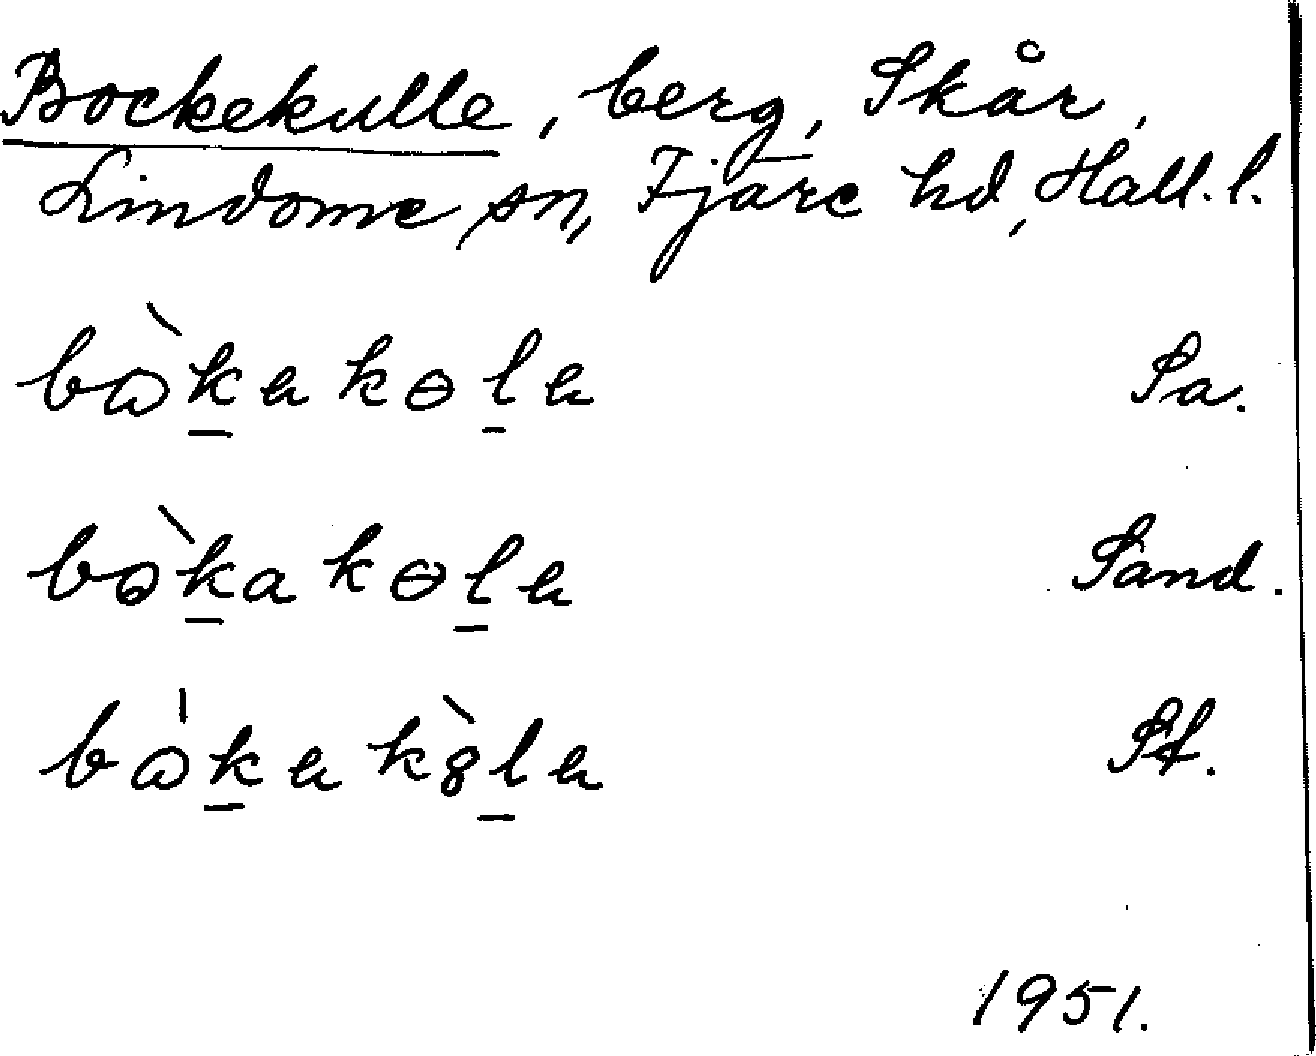 Bockekulle, berg, Skår,
Lindome sn, Fjäre hd, Hall. l.
bɷ̀kakɵla Sa.
bɷ̀kakɵla Sand.
bɷ́kakò̤la St.
1951.